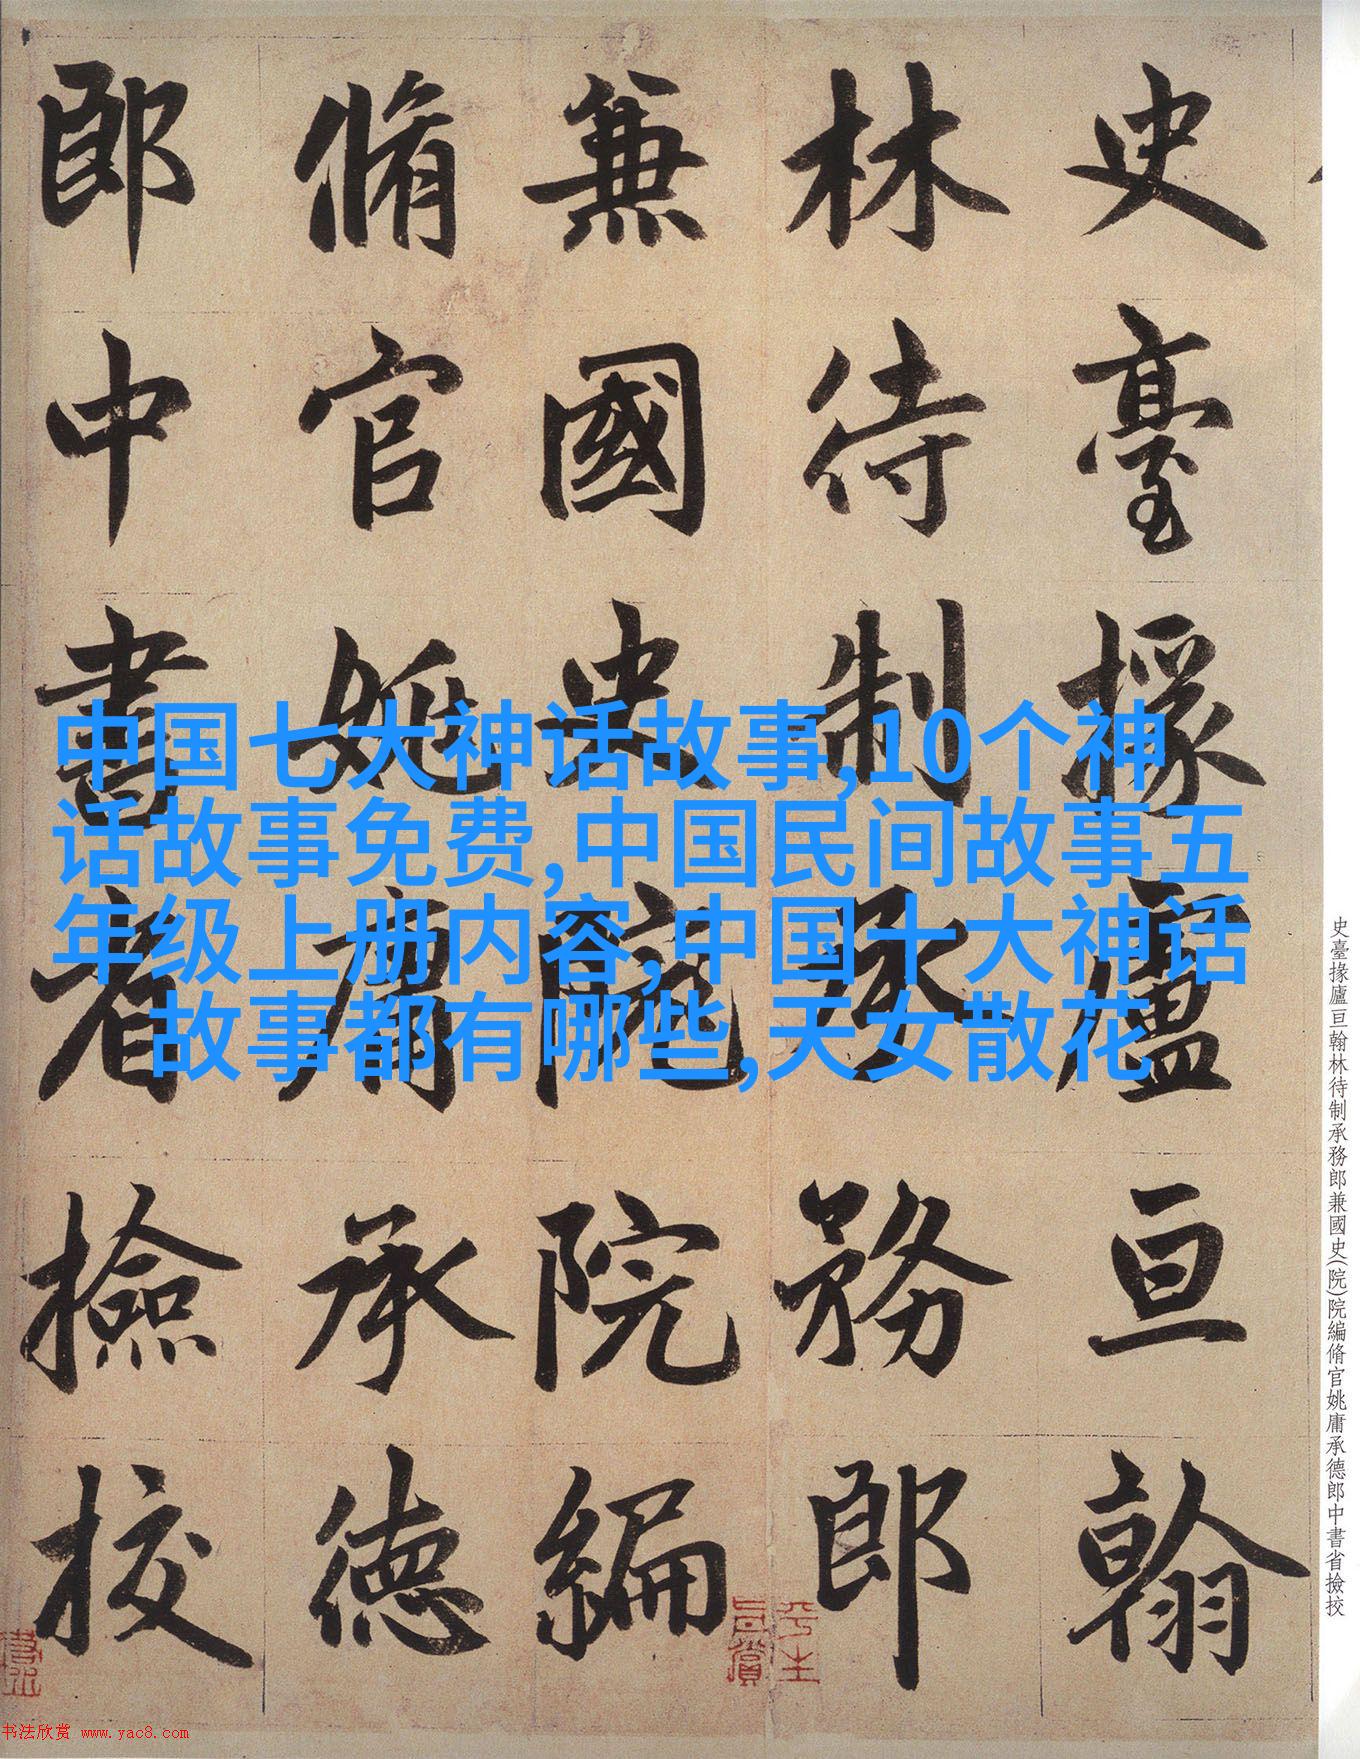 史臺掾廬亘翰
林待制承務郎
兼國史院院編
脩官姚庸承德
郎中書省撿挍
中国七大神话故事,10个神
话故事免费,中国民间故事五
年级上册内容,中国十大神话
故事都有哪些,天女散花
史臺掾廬亘翰林待制承務郎兼國史(院)院編脩官姚庸承德郎中書省撿挍
书法欣赏 www.yac8.com